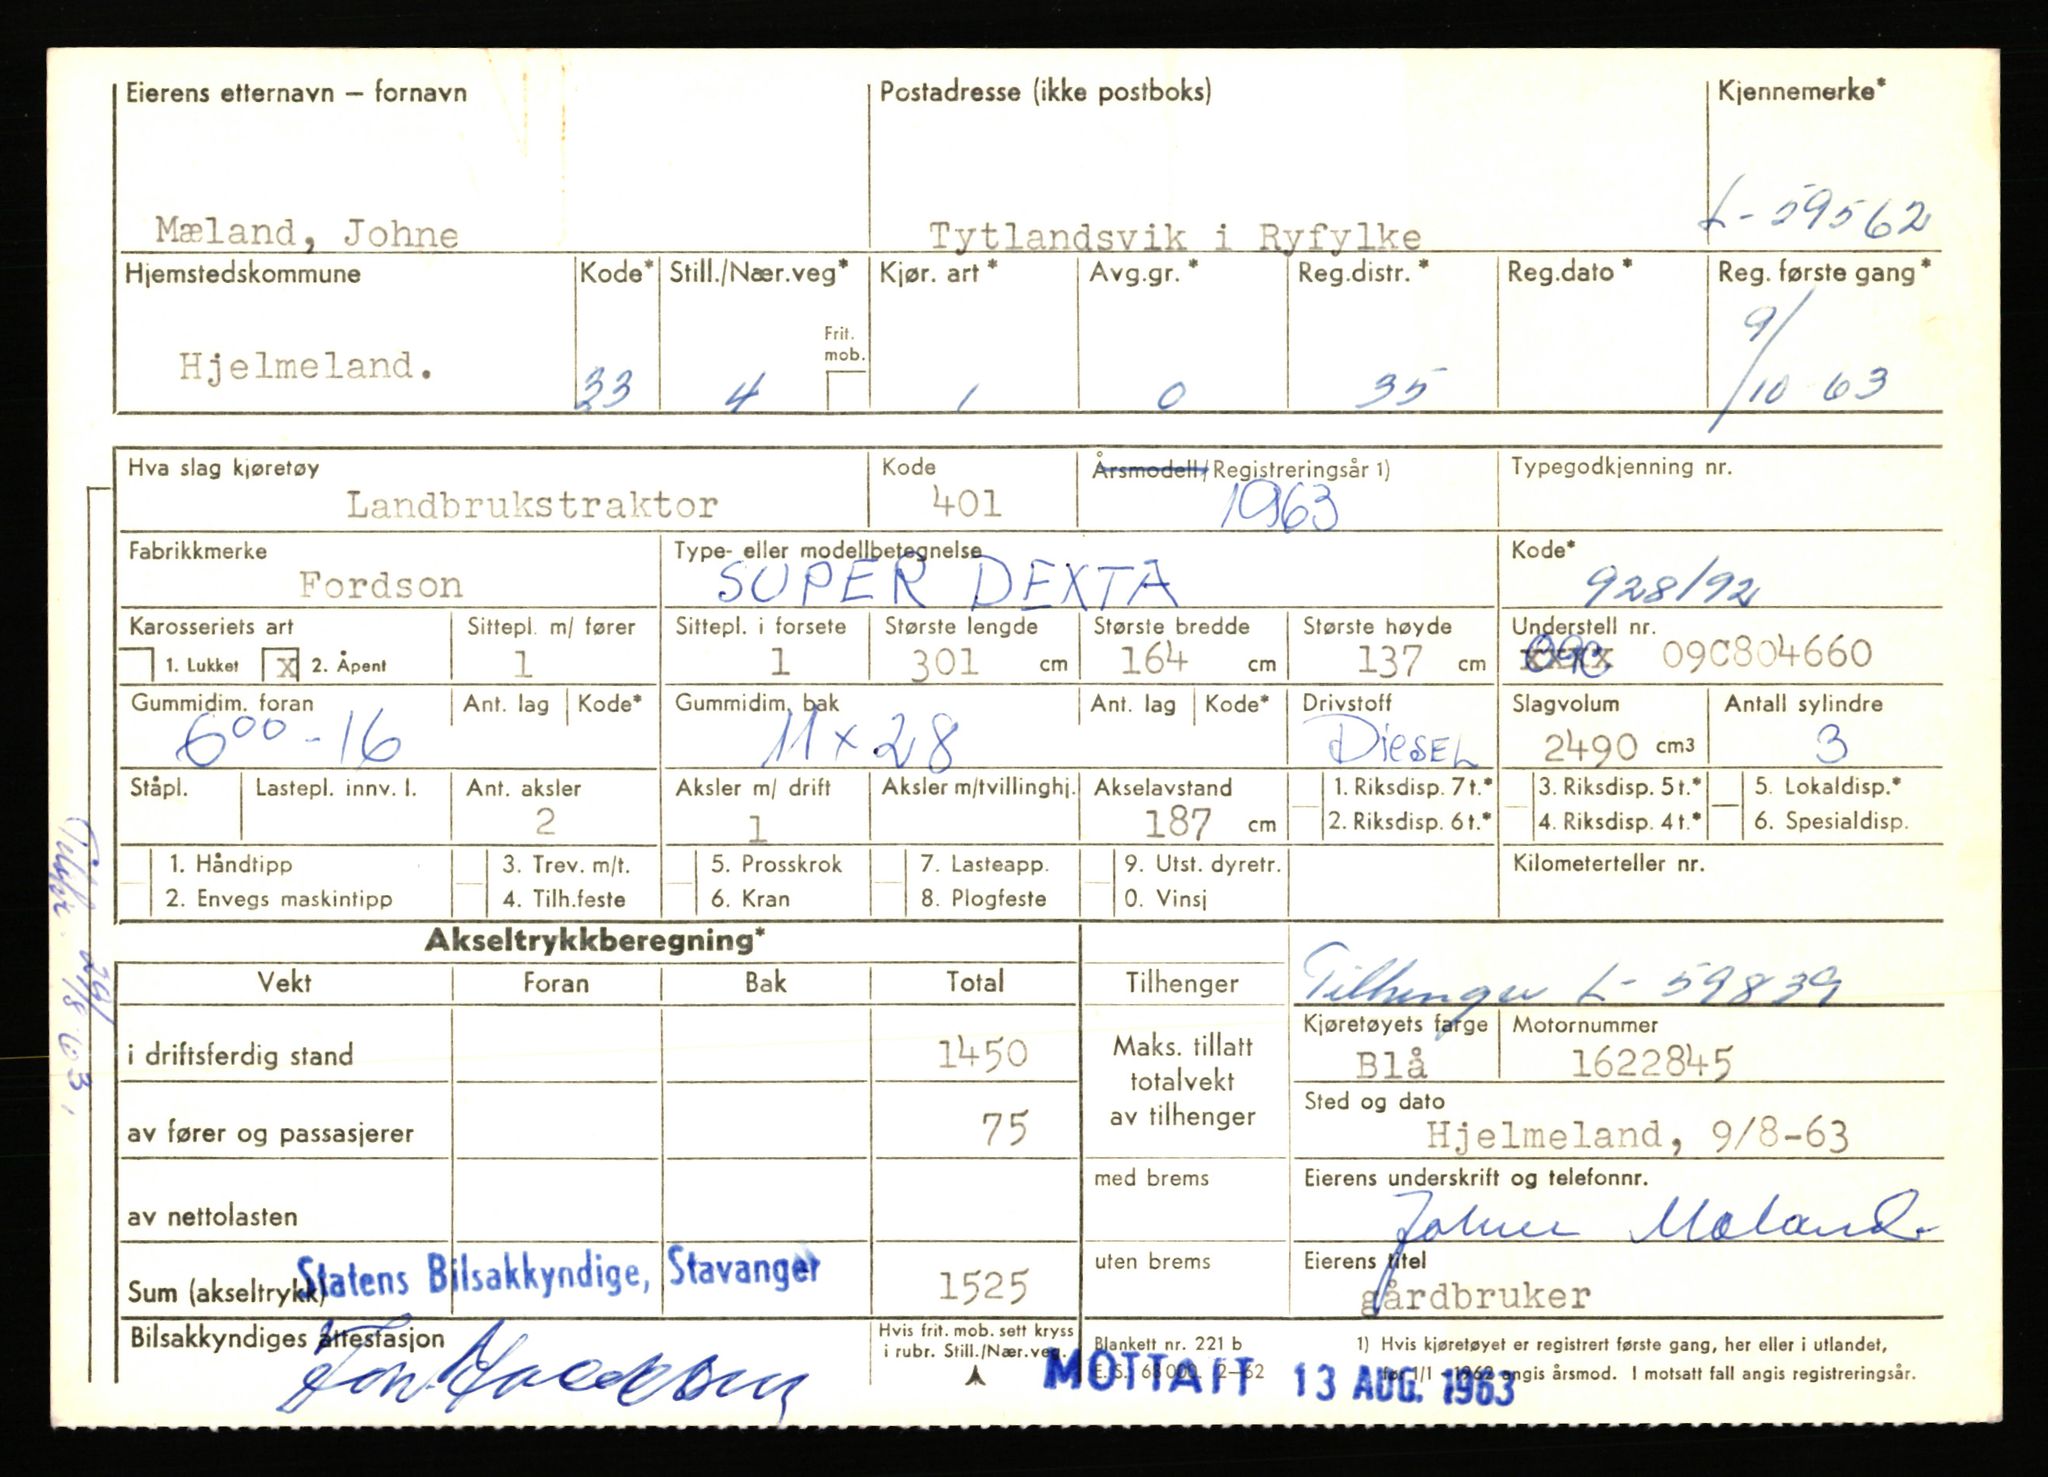 Eierens etternavn – fornavn
Postadresse (ikke postboks)
Kjennemerke*
Mæland, Johne
Tytlandsvik i Ryfylke
L- 59562
Hjemstedskommune
Kode*
Still./Nær.veg*
Kjør. art *
Avg.gr. *
Reg.distr. *
Reg.dato *
Reg. første gang*
Frit. mob.
Hjelmeland.
33
4
1
0
35
9/10 63
Hva slag kjøretøy
Kode
Årsmodell/Registreringsår 1)
Typegodkjenning nr.
Landbrukstraktor
401
1963
Fabrikkmerke
Type- eller modellbetegnelse
Kode*
Fordson
SUPER DEXTA
928/92
Karosseriets art
Sittepl. m/ fører
Sittepl. i forsete
Største lengde
Største bredde
Største høyde
Understell nr.
1. Lukket
X 2. Åpent
1
1
301 cm
164 cm
137 cm
09C804660
Gummidim. foran
Ant. lag
Kode*
Gummidim. bak
Ant. lag
Kode*
Drivstoff
Slagvolum
Antall sylindre
6 00 - 16
11 x 28
Diesel
2490 cm3
3
Ståpl.
Lastepl. innv. l.
Ant. aksler
Aksler m/ drift
Aksler m/tvillinghj.
Akselavstand
1. Riksdisp. 7 t.*
3. Riksdisp. 5 t.*
5. Lokaldisp.*
2
1
187 cm
2. Riksdisp. 6 t.*
4. Riksdisp. 4 t.*
6. Spesialdisp.
1. Håndtipp
3. Trev. m/t.
5. Prosskrok
7. Lasteapp.
9. Utst. dyretr.
Kilometerteller nr.
2. Envegs maskintipp
4. Tilh.feste
6. Kran
8. Plogfeste
0. Vinsj
Akseltrykkberegning*
Vekt
Foran
Bak
Total
Tilhenger
Tilhenger L- 59839
Kjøretøyets farge
Motornummer
i driftsferdig stand
1450
Maks. tillatt
totalvekt
av tilhenger
Blå
1622845
Sted og dato
av fører og passasjerer
75
Hjelmeland, 9/8-63
med brems
Eierens underskrift og telefonnr.
av nettolasten
Johne Mæland.
uten brems
Eierens titel
Statens Bilsakkyndige, Stavanger
Sum (akseltrykk)
1525
gårdbruker
Bilsakkyndiges attestasjon
Hvis frit. mob. sett kryss
i rubr. Still./Nær.veg.
Blankett nr. 221 b
E. S. 68 000. 2–62
1) Hvis kjøretøyet er registrert første gang, her eller i utlandet,
før 1/1 - 1962 angis årsmod. I motsatt fall angis registreringsår.
MOTTATT 13 AUG. 1963
29/8 63.